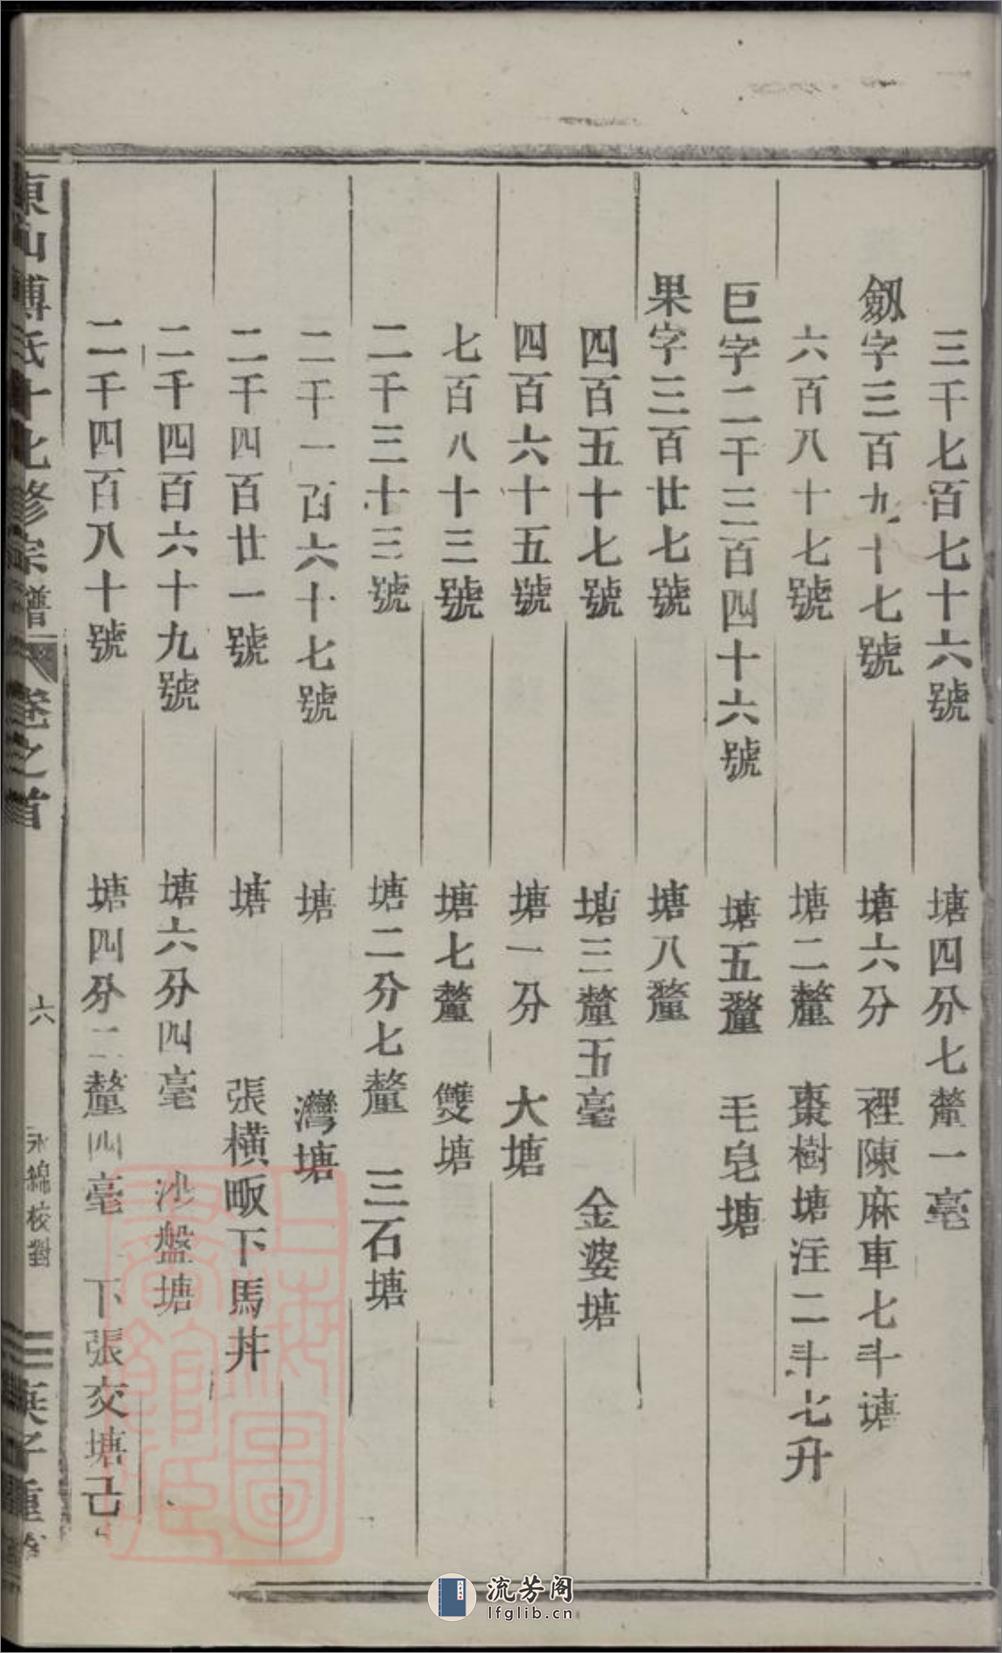 三千七百七十六號　塘四分七釐一毫
劔字三百九十七號　塘六分　裡陳麻車七斗塘
六百八十七號　塘二釐　棗樹塘注二斗七升
巨字二千三百四十六號　塘五釐　毛皂塘
果字三百廿七號　塘八釐
四百五十七號　塘三釐五毫　金婆塘
四百六十五號　塘一分　大塘
七百八十三號　塘七釐　雙塘
二千三十三號　塘二分七釐　三石塘
二千一百六十七號　塘　灣塘
二千四百廿一號　塘　張橫畈下馬井
二千四百六十九號　塘六分四毫　沙盤塘
二千四百八十號　塘四分二釐四毫　下張交塘己
東山傅氏十七修宗譜　卷之首　六　永綿校對
上海圖書館藏
流芳阁
lfglib.cn